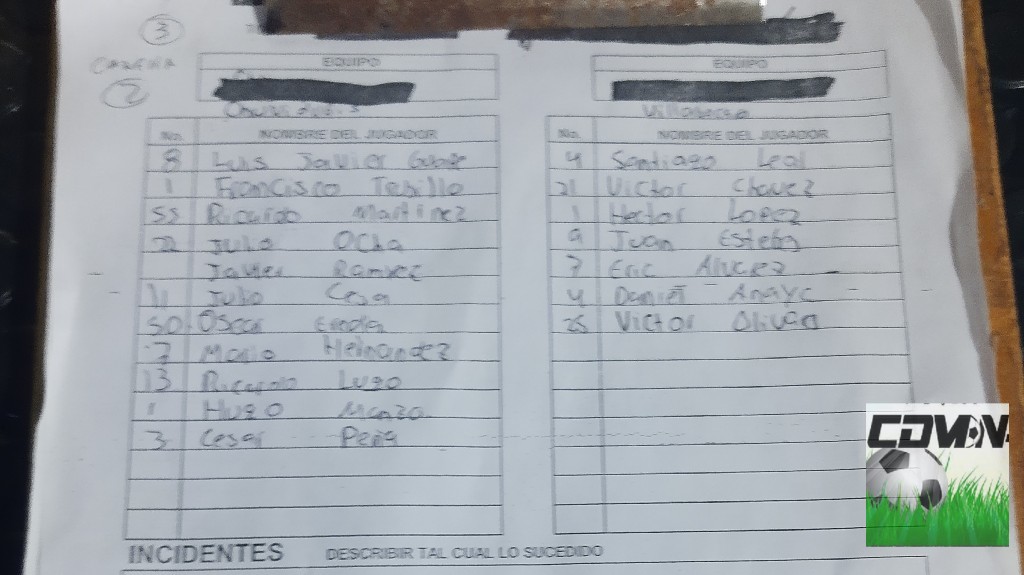 3
CANCHA
2
EQUIPO
No. NOMBRE DEL JUGADOR
8 Luis Javier
1 Francisco
55 Ricardo Martinez
22 Julio Ocha
Javier Ramirez
11 Julio Cesar
50 Oscar
7 Mario Hernandez
13 Ricardo Lugo
1 Hugo
3 Cesar Peña
EQUIPO
No. NOMBRE DEL JUGADOR
4 Santiago Leal
21 Victor Chavez
1 Hector Lopez
9 Juan Esteban
7 Eric Alvarez
4 Daniel Anaya
25 Victor Olivan
INCIDENTES DESCRIBIR TAL CUAL LO SUCEDIDO
CDMN